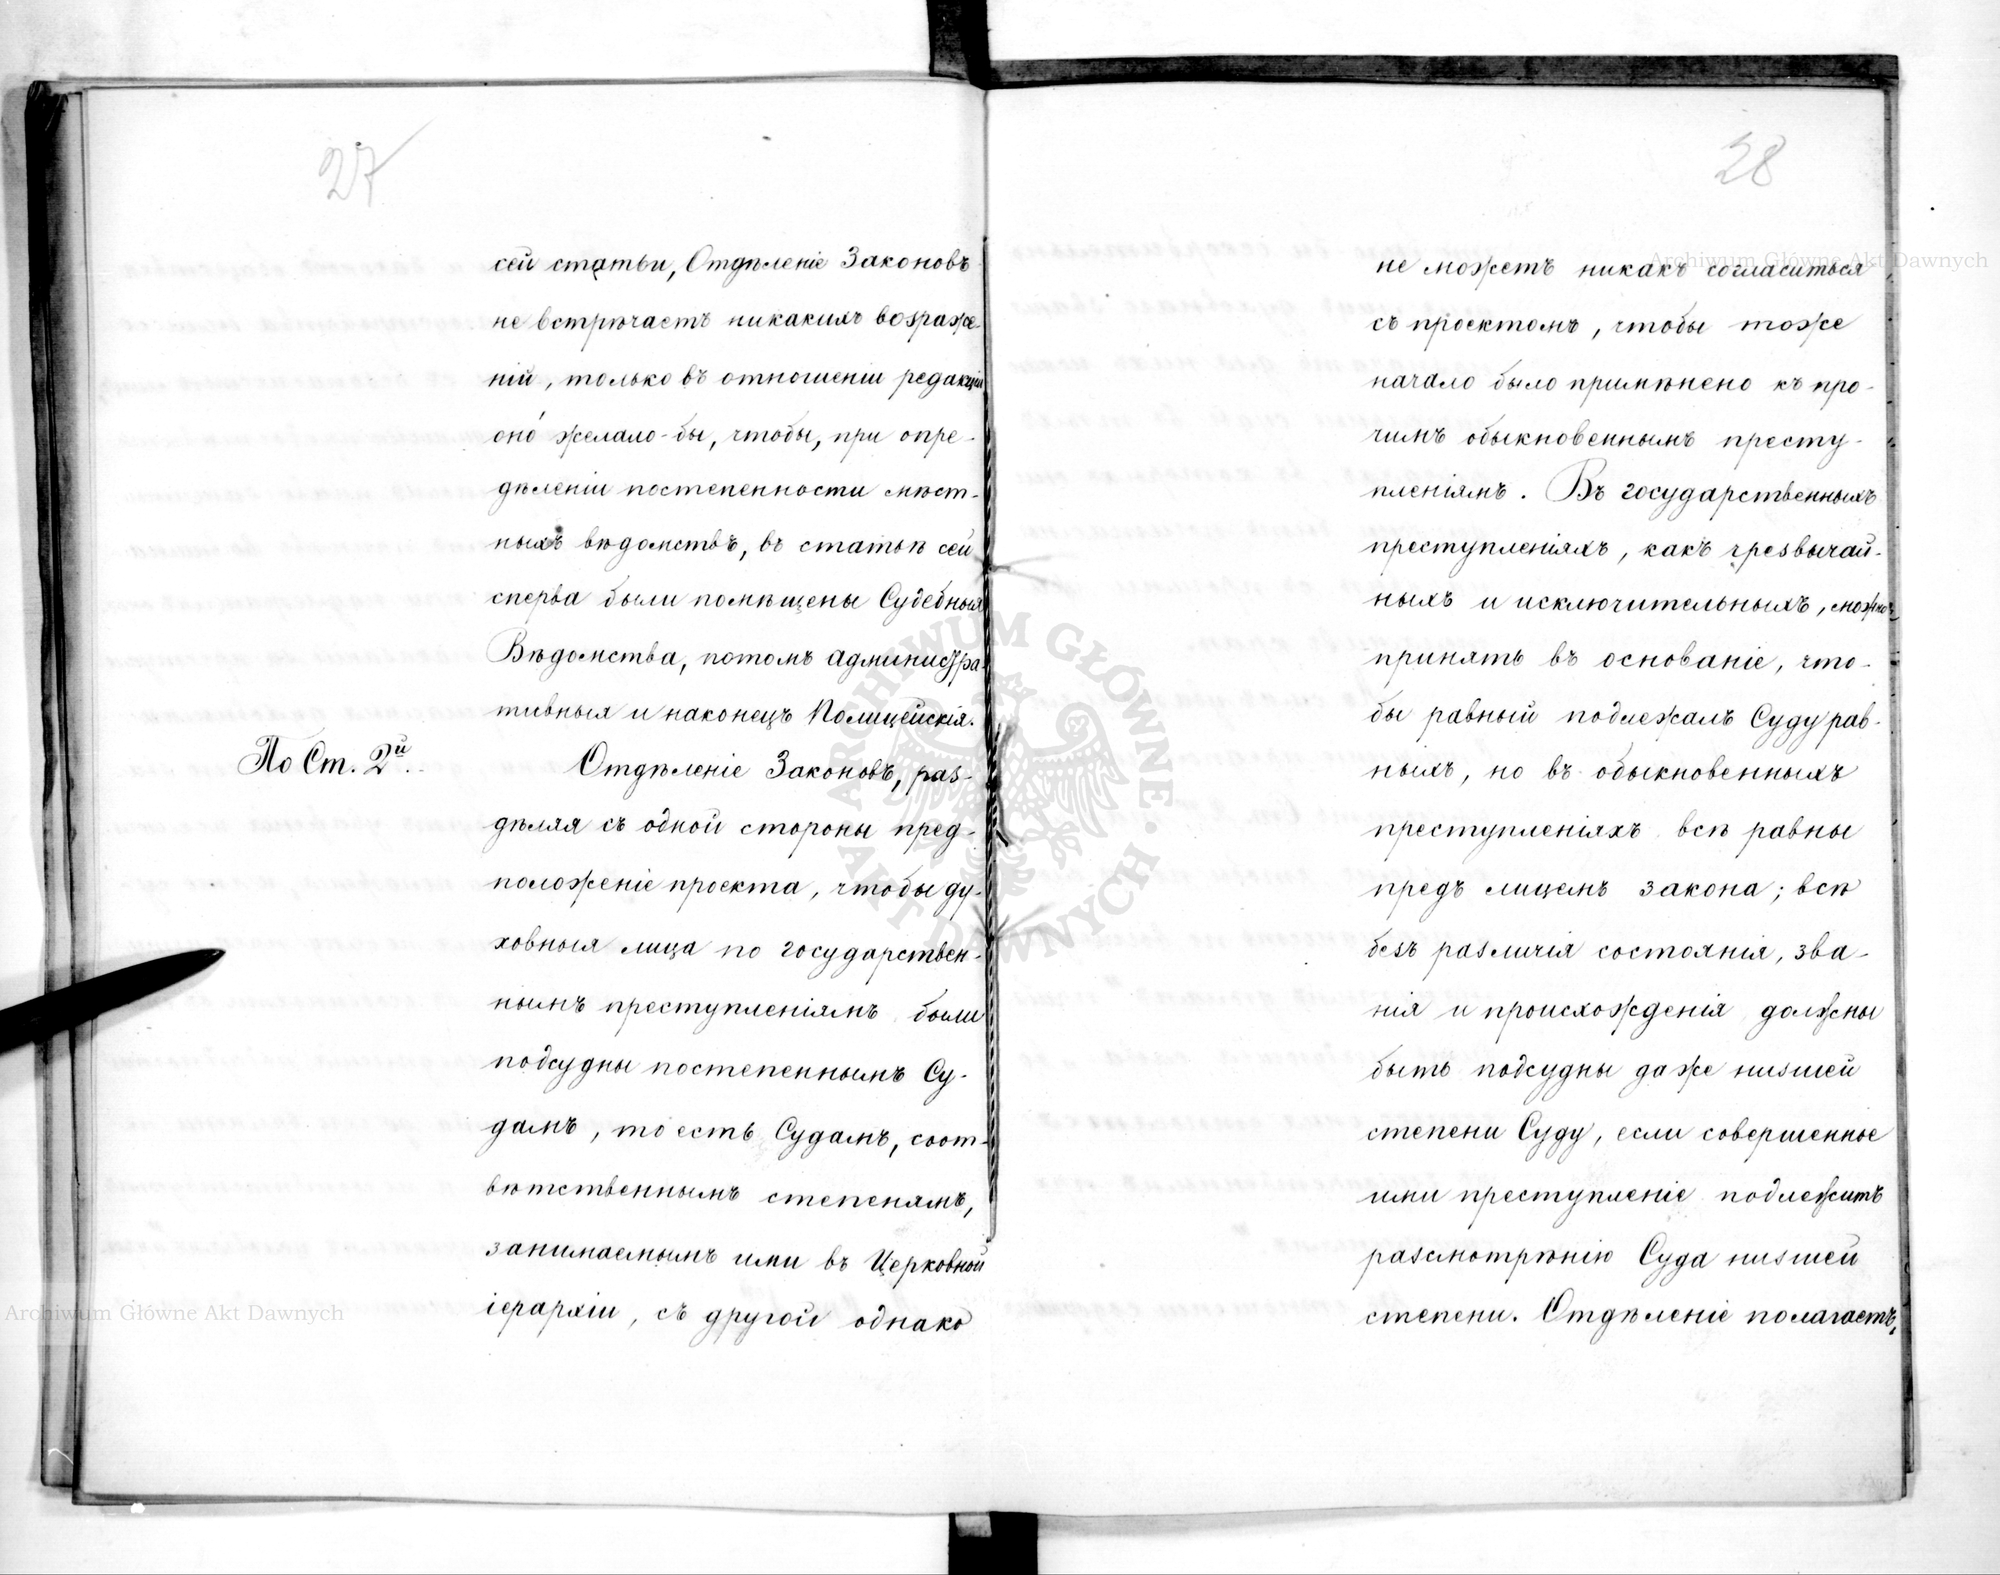 27
сей статьи, Отдѣленіе Законовъ
не встрѣчаетъ никакихъ возраже-
ній, только въ отношеніи редакціи
оно́ желало-бы, чтобы, при опре-
дѣленіи постепенности мѣст-
ныхъ вѣдомствъ, въ статьѣ сей
сперва были помѣщены Судебныя
Вѣдомства, потомъ Администра-
тивныя и наконецъ Полицейскія.
По Ст. 2й.
Отдѣленіе Законовъ, раз-
дѣляя съ одной стороны пред-
положеніе проекта, чтобы ду-
ховныя лица по государствен-
нымъ преступленіямъ были
подсудны постепеннымъ Су-
дамъ, то есть Судамъ, соот-
вѣтственнымъ степенямъ,
занимаемымъ ими въ Церковной
іерархіи, съ другой однако
28
не можетъ никакъ согласиться
съ проектомъ, чтобы тоже
начало было примѣнено къ про-
чимъ обыкновеннымъ престу-
пленіямъ. Въ государственныхъ
преступленіяхъ, какъ чрезвычай-
ныхъ и исключительныхъ, можно
принять въ основаніе, что-
бы равный подлежалъ Суду рав-
ныхъ, но въ обыкновенныхъ
преступленіяхъ всѣ равны
предъ лицемъ закона; всѣ
безъ различія состоянія, зва-
нія и происхожденія должны
быть подсудны даже низшей
степени Суду, если совершенное
ими преступленіе подлежитъ
разсмотрѣнію Суда низшей
степени. Отдѣленіе полагаетъ,
Archiwum Główne Akt Dawnych
Archiwum Główne Akt Dawnych
ARCHIWUM GŁÓWNE AKT DAWNYCH